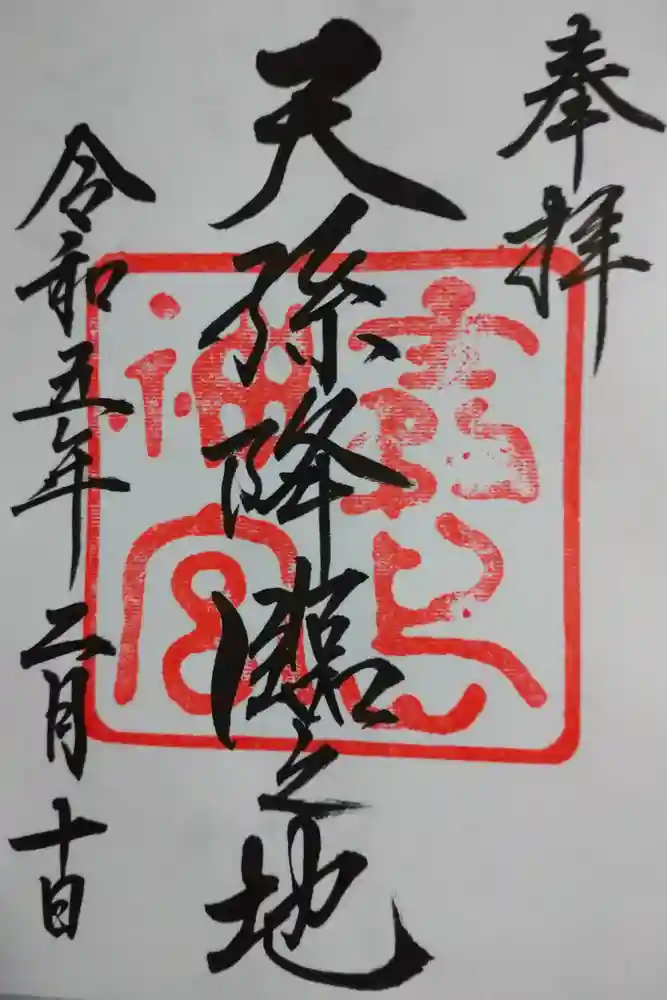 奉拝
天孫降臨之地
令和五年二月十日